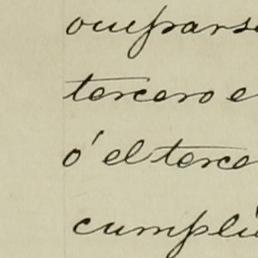 ocupars
tercero e
ó el terce
cumpli